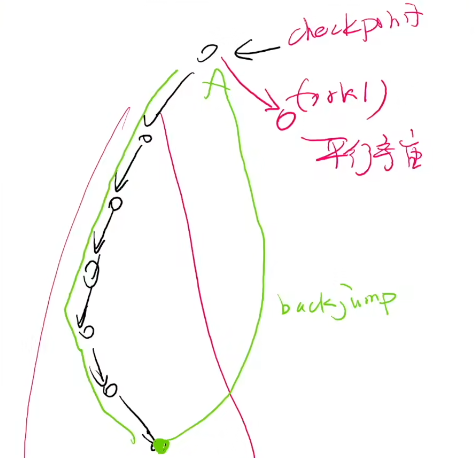 checkpoint
fork()
平行宇宙
backjump